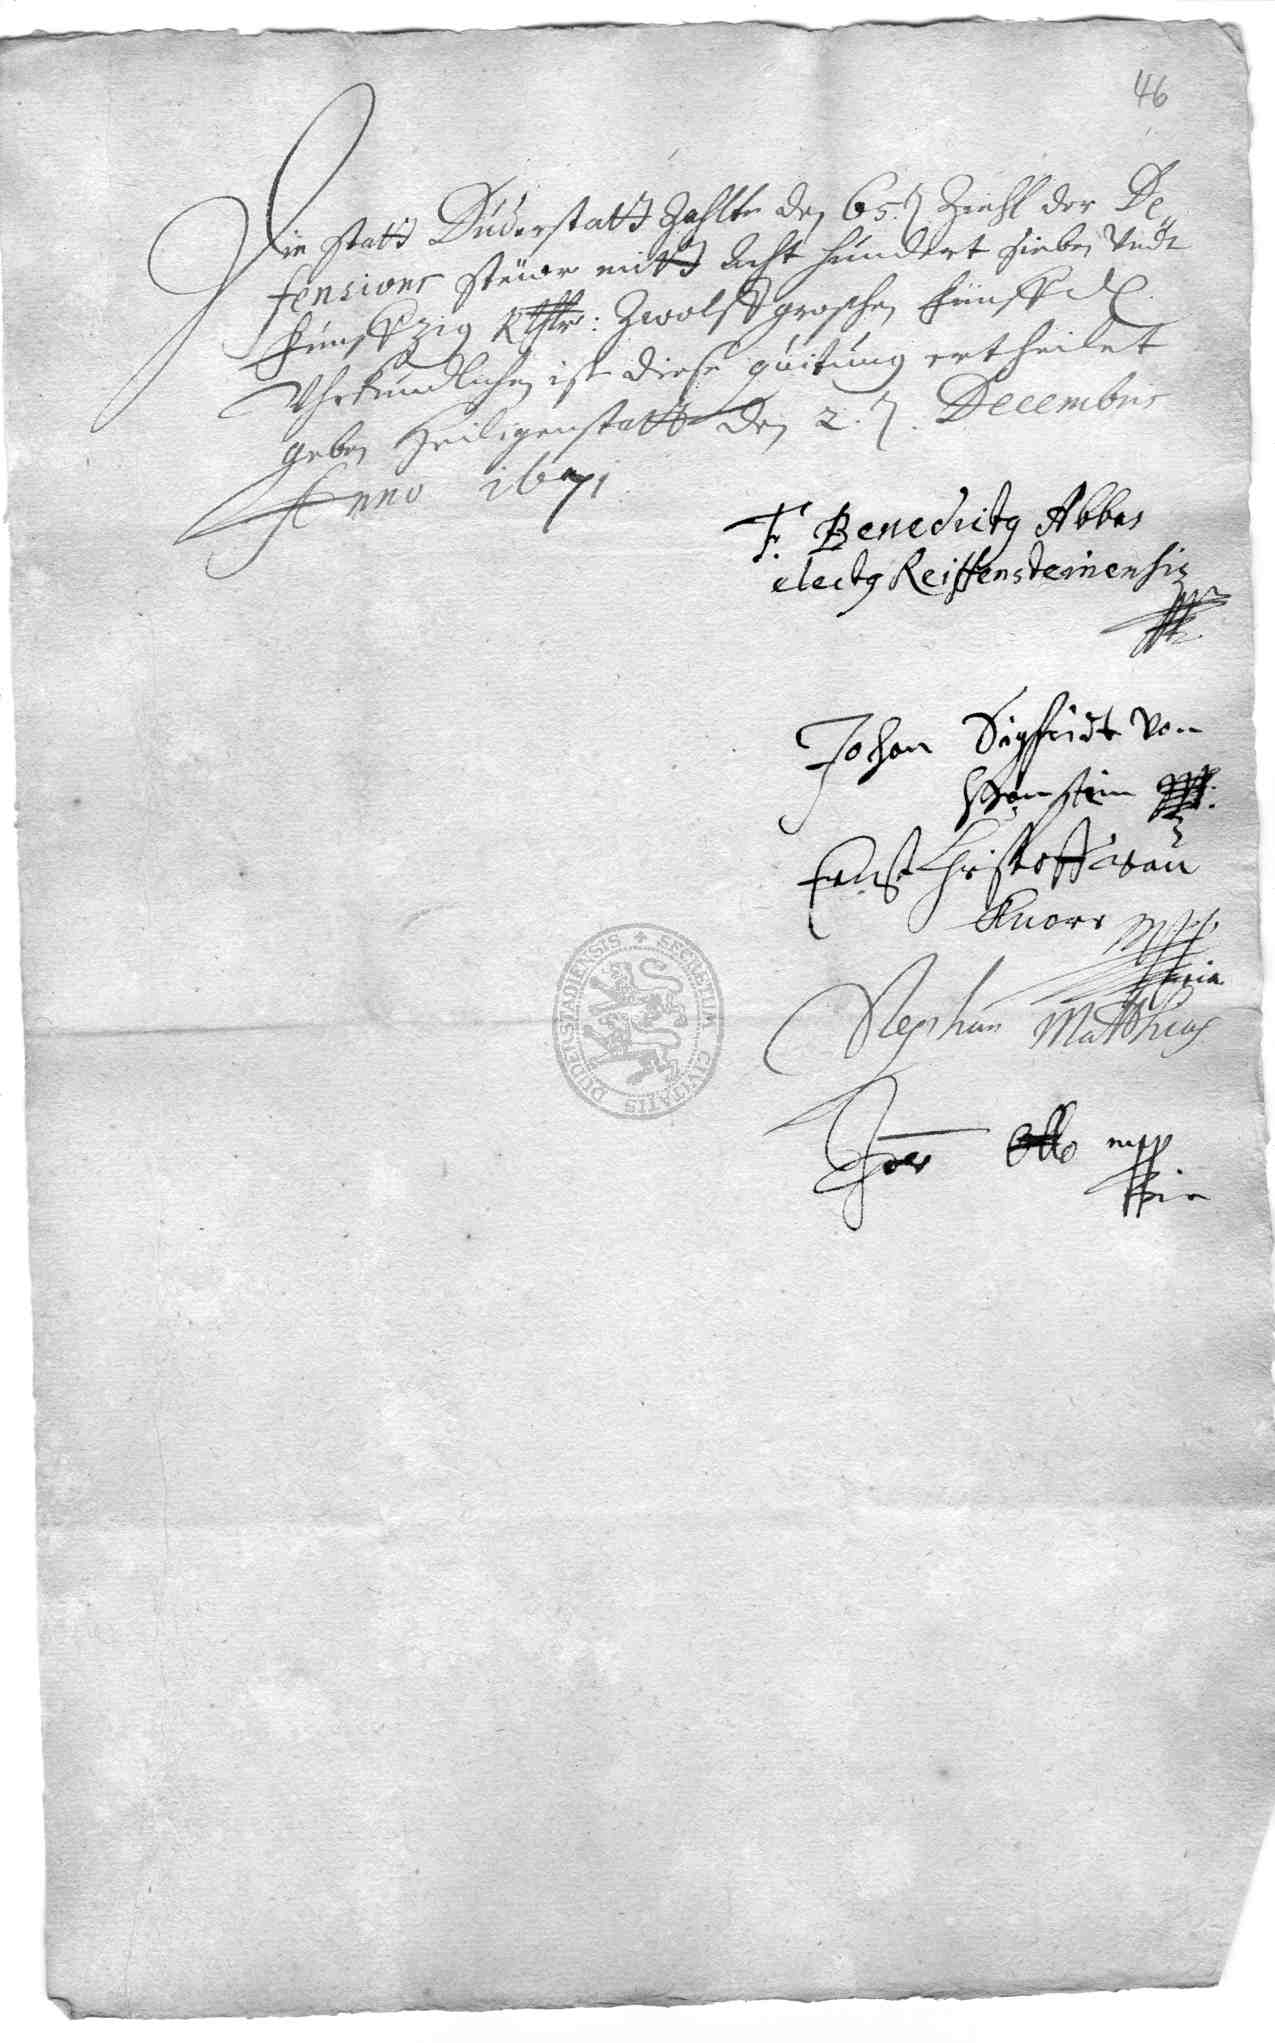 46
Die statt Duderstatt Zahlte den 65.ten Ziehl der De„
fensions steuer mitt acht hundert sieben undt
fünffzig Rthlr: Zwolff groschen fünff d
Uhrkundlichen ist diese quitung ertheilet
geben Heiligenstatt den 2.ten Decembris
Anno 1671
F. Benedictus Abbas
electus Reiffensteinensis
Johan Sigfridt von
Hanstein
Ernst Christoff von
Knorr mpp
ria
Stephan Matthias
Otto mpp
ria
SECRETUM CIVITATIS DUDERSTADIENSIS